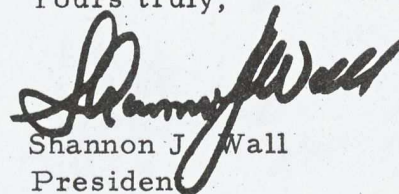 Yours truly,
Shannon J Wall
Shannon J. Wall
President